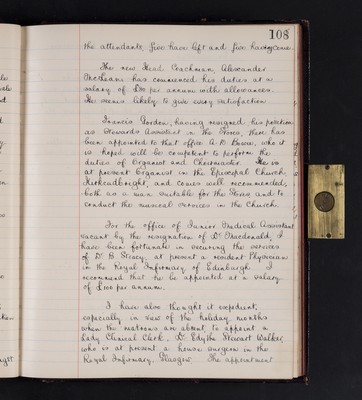 108
the attendants, five have left and five have come.
The new Head Coachman, Alexander
McCleans has commenced his duties at a
salary of £80 per annum with allowances.
He seems likely to give every satisfaction.
Francis Gordon, having resigned his position
as Stewards Assistant in the Stores, there has
been appointed to that office A. B. who it
is hoped will be competent to perform the
duties of Organist and Choirmaster. He is
at present Organist in the Episcopal Church
Kirkcudbright, and comes well recommended,
both as a man suitable for the Stores and to
conduct the musical services in the Church.
For the office of Junior Medical Assistant
vacant by the resignation of Dr Macdonald, I
have been fortunate in securing the services
of Dr H at present a resident Physician
in the Royal Infirmary of Edinburgh. I
recommend that he be appointed at a salary
of £100 per annum.
I have also thought it expedient,
especially in view of the holiday months
when the Matrons are absent to appoint a
Lady Clinical Clerk, Dr Edythe Stewart Walker,
who is at present a house surgeon in the
Royal Infirmary, Glasgow. The appointment